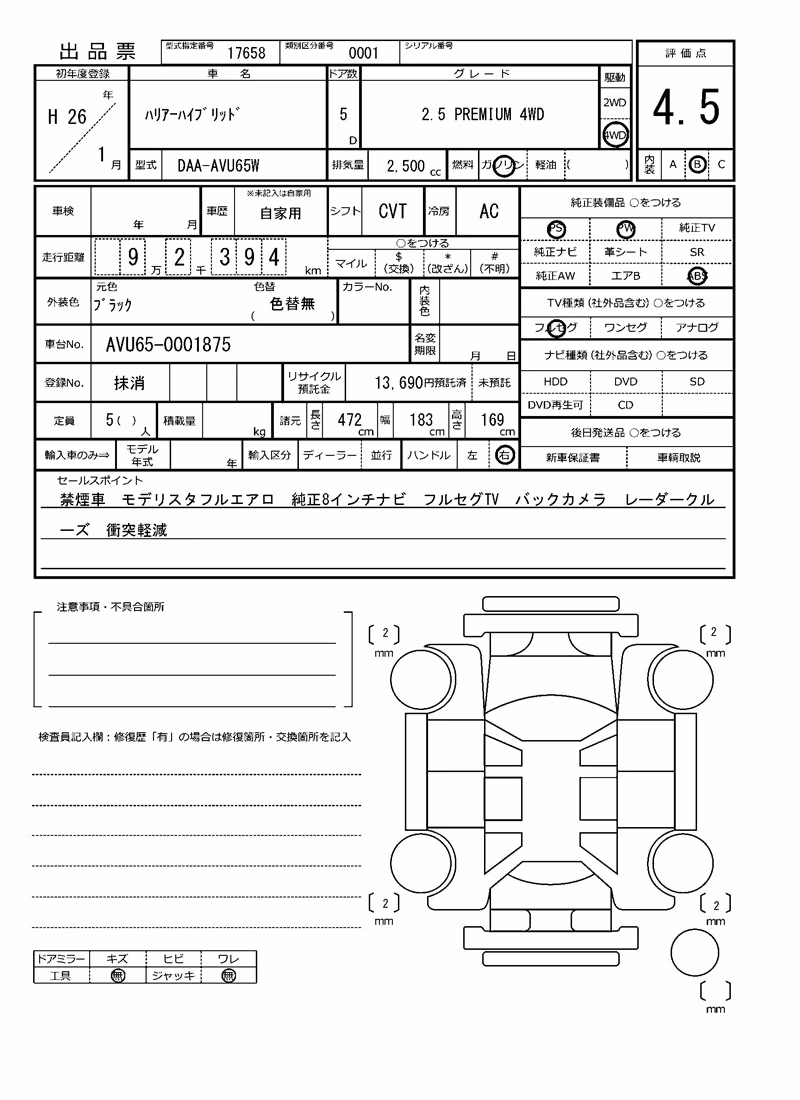 出品票
型式指定番号 17658 類別区分番号 0001 シリアル番号
初年度登録 車名 ドア数 グレード 駆動 評価点
H 26 年 1 月
ﾊﾘｱｰﾊｲﾌﾞﾘｯﾄﾞ 5 D 2.5 PREMIUM 4WD 2WD 4WD 4.5
型式 DAA-AVU65W 排気量 2,500 cc 燃料 ガソリン 軽油 ( ) 内装 A B C
車検 年 月 車歴 ※未記入は自家用 自家用 シフト CVT 冷房 AC
純正装備品 ○をつける
PS PW 純正TV
走行距離 9 万 2 千 3 9 4 km ○をつける
マイル $(交換) *(改ざん) #(不明)
純正ナビ 革シート SR
純正AW エアB ABS
外装色 元色 ﾌﾞﾗｯｸ 色替 色替無 ( ) カラーNo. 内装色
TV種類(社外品含む)○をつける
フルセグ ワンセグ アナログ
車台No. AVU65-0001875 名変期限 月 日
ナビ種類(社外品含む)○をつける
登録No. 抹消 リサイクル預託金 13,690円預託済 未預託
HDD DVD SD
DVD再生可 CD
定員 5( ) 人 積載量 kg 諸元 長さ 472 cm 幅 183 cm 高さ 169 cm
後日発送品 ○をつける
輸入車のみ⇒ モデル年式 年 輸入区分 ディーラー 並行 ハンドル 左 右
新車保証書 車輌取説
セールスポイント
禁煙車 モデリスタフルエアロ 純正8インチナビ フルセグTV バックカメラ レーダークル
ーズ 衝突軽減
注意事項・不具合箇所
[ 2 ] mm [ 2 ] mm
検査員記入欄：修復歴「有」の場合は修復箇所・交換箇所を記入
[ 2 ] mm [ 2 ] mm
ドアミラー キズ ヒビ ワレ
工具 無 ジャッキ 無
[ ] mm